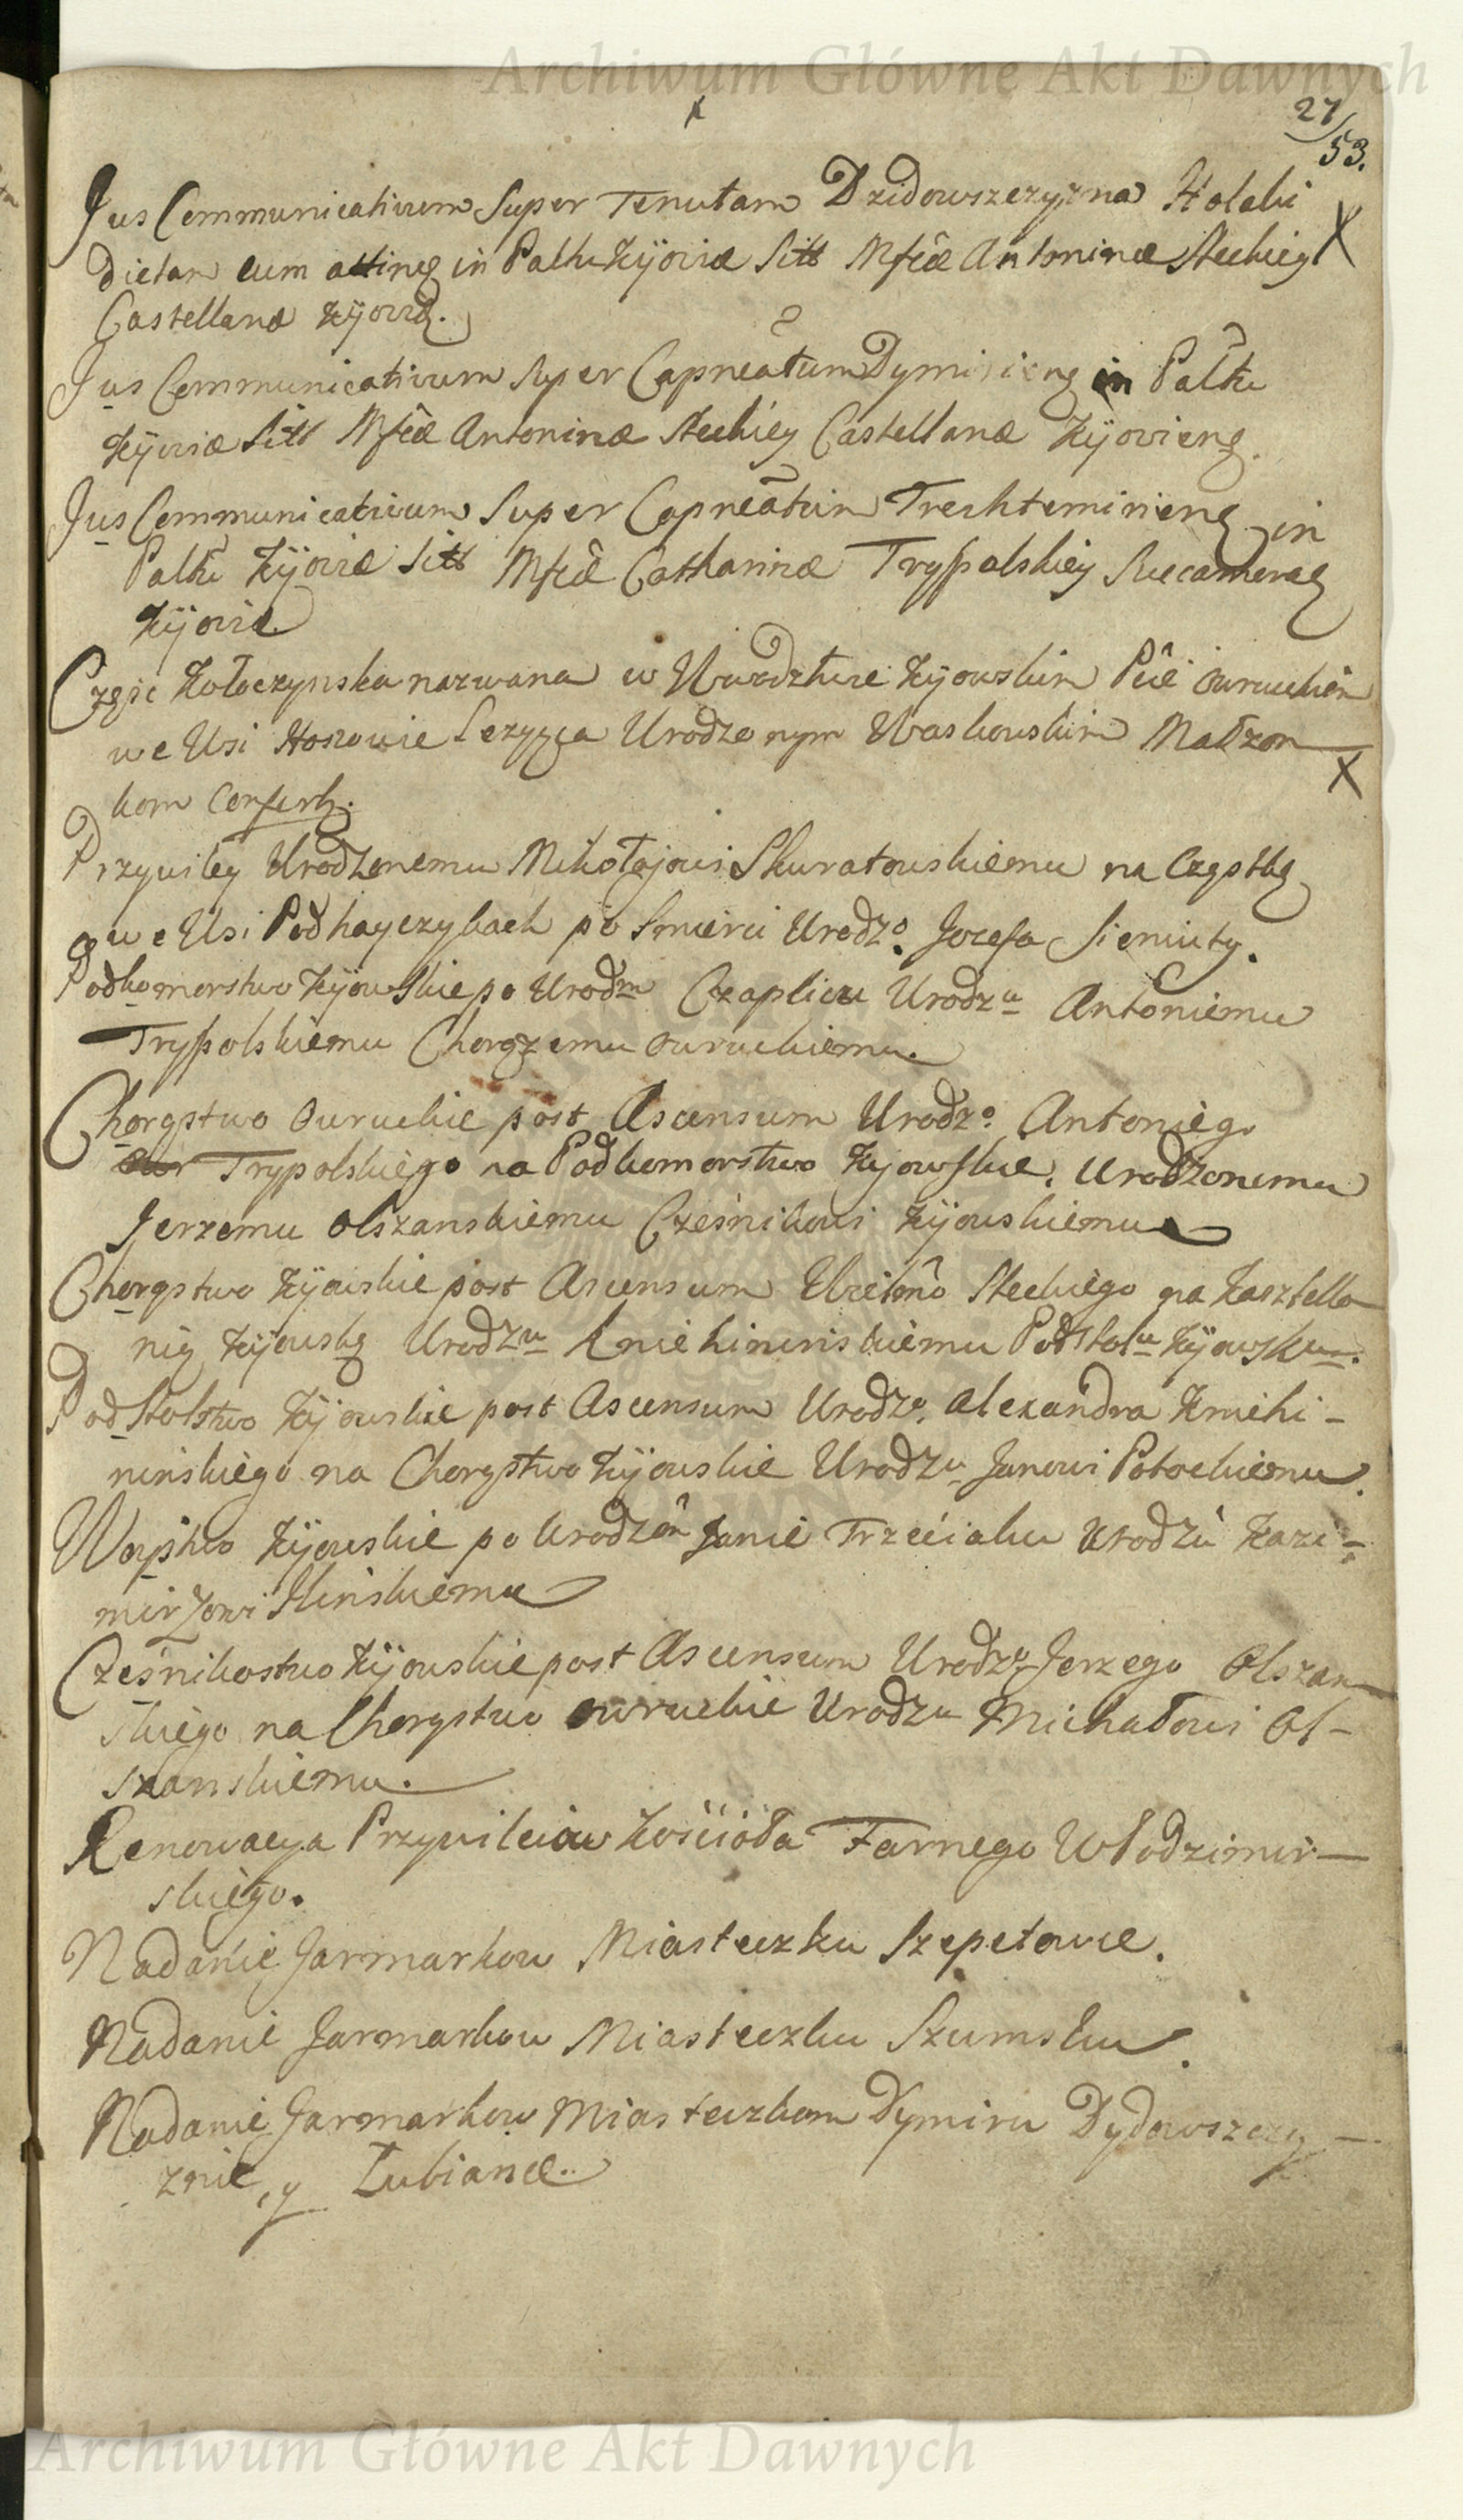 Archiwum Główne Akt Dawnych
27
53.
Jus Communicativum Super Tenutam Dzidowszczyzna Holaki
dictam cum attineȝ in Palłu Kÿoviæ Sitt Mfcæ Antoninæ Steckiey
Castellanæ Kÿovieȝ.
Jus Communicativum Super Capneatum Dymirieng in Palłu
Kÿoviæ Sitt Mfcæ Antoninæ Steckiey Castellanæ Kÿovieng.
Jus Communicativum Super Capneatum Trechtemirieng in
Palłu Kÿoviæ Sitt Mfcæ Catharinæ Trypolskiey Succamerag
Kÿoviæ
Częśc Kołoczynska nazwana w Uwodztwie Kÿowskim Pcie Owruckim
we Wsi Leżąca Urodzonym Waskowskim Małzon
kom
Przywiley Urodzonemu Mikołajowi Skuratowskiemu na Cząstkę
we Wsi Podhayczykach po Smierci Urodzo. Jozefa Sieniuty.
Podkomorstwo Kÿowskie po Urodzm Czaplicu Urodzu Antoniemu
Trypolskiemu Chorążemu Owruckiemu.
Chorąstwo Owruckie post Ascensum Urodzo. Antoniego
Trypolskiego na Podkomorstwo Kÿowskie, Urodzonemu
Jerzemu Olszanskiemu Cześnikowi Kÿowskiemu
Chorąstwo Kÿowskie post Ascensum Steckiego na Kasztella
nię Kÿowską Urodzu Kniehininskiemu Podstolu Kÿowsku.
Podstolstwo Kÿowskie post Ascensum Urodzo. Alexandra Kniehi-
ninskiego na Chorąstwo Kÿowskie Urodzu Janowi Potockiemu.
Woystwo Kÿowskie po Urodzon Janie Trzeciaku Urodzu Kazi-
mirzowi Ilinskiemu
Cześnikostwo Kÿowskie post Ascensum Urodzo Jerzego Olszan-
skiego na Chorąstwo Owruckie Urodzu Michałowi Ol-
szanskiemu.
Renowacya Przywileiow Kościoła Farnego Włodzimir-
skiego.
Nadanie Jarmarkow Miasteczku Szepetowce.
Nadanie Jarmarkow Miasteczku Szumsku.
Nadanie Jarmarkow Miasteczkom Dymiru Dydowszczy-
znie, y Łubiance.
Archiwum Główne Akt Dawnych